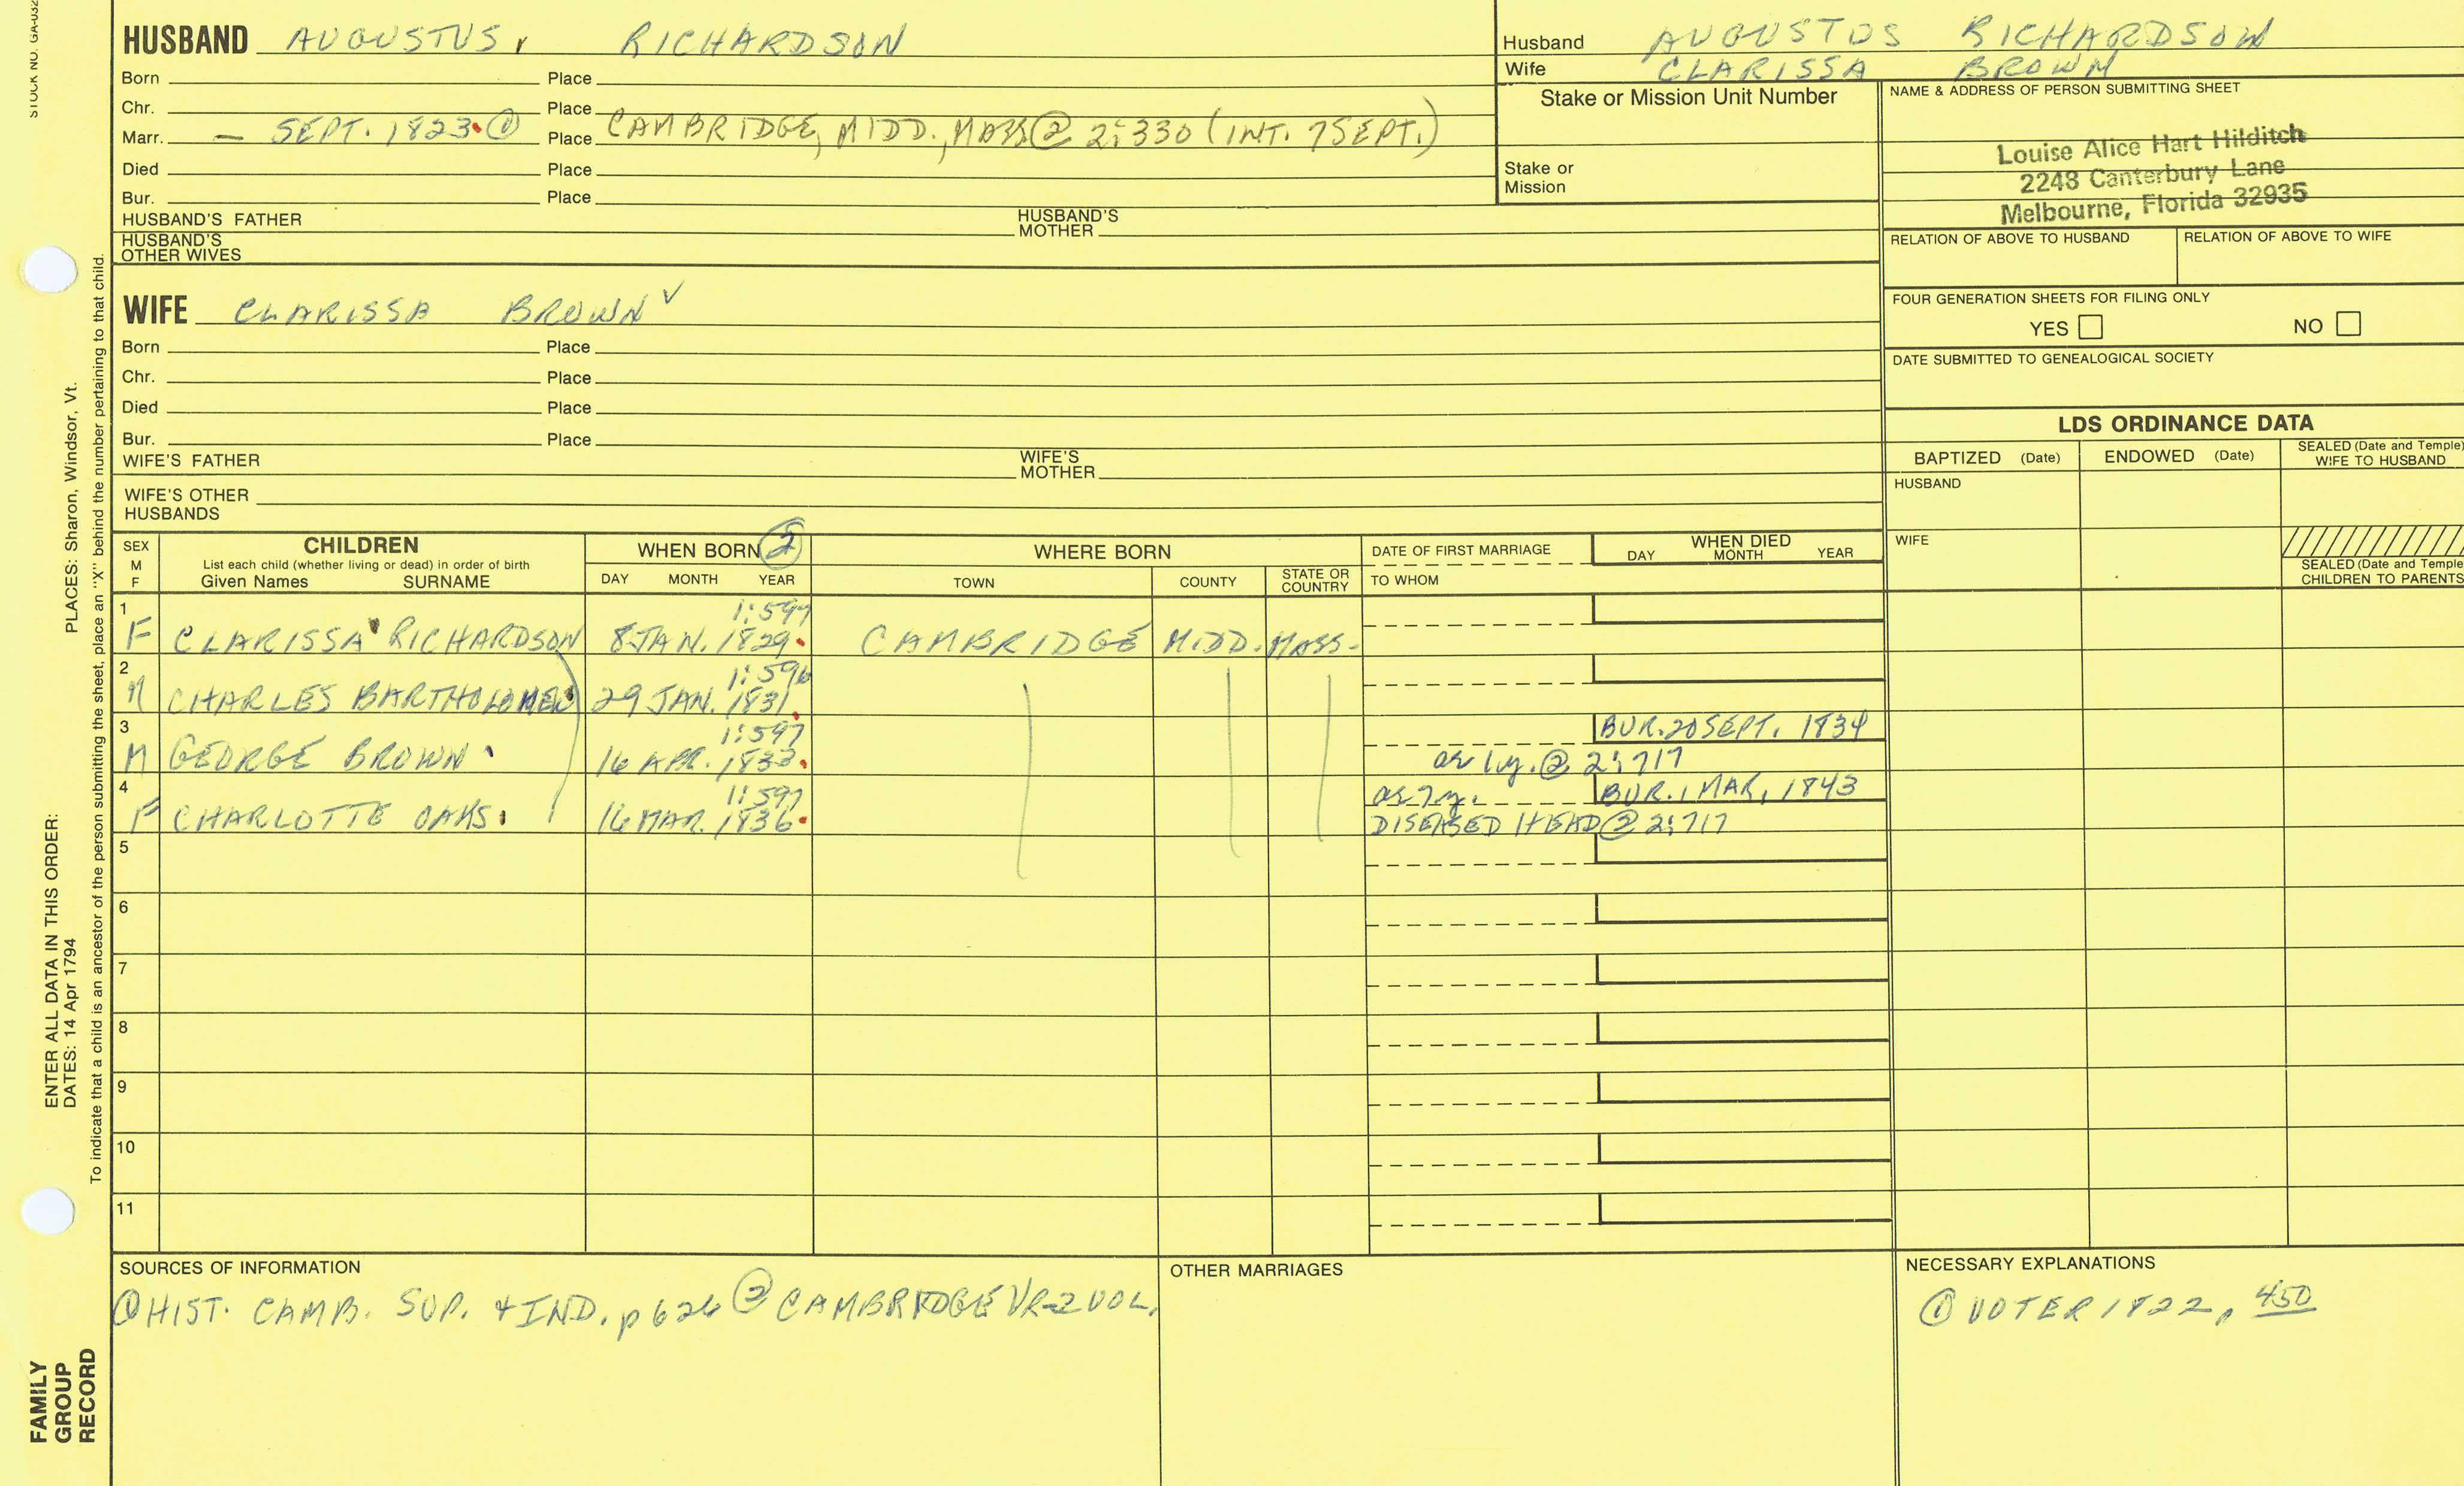 STOCK NO. GA-032
HUSBAND AUGUSTUS, RICHARDSON
Husband AUGUSTUS RICHARDSON
Wife CLARISSA BROWN
Born Place
Chr. Place
Marr. — SEPT. 1823 ① Place CAMBRIDGE, MIDD., MASS ② 2:330 (INT. 7 SEPT.)
Died Place
Bur. Place
HUSBAND'S FATHER HUSBAND'S MOTHER
HUSBAND'S OTHER WIVES
Stake or Mission Unit Number
Stake or
Mission
NAME & ADDRESS OF PERSON SUBMITTING SHEET
Louise Alice Hart Hilditch
2248 Canterbury Lane
Melbourne, Florida 32935
RELATION OF ABOVE TO HUSBAND RELATION OF ABOVE TO WIFE
FOUR GENERATION SHEETS FOR FILING ONLY
YES NO
DATE SUBMITTED TO GENEALOGICAL SOCIETY
WIFE CLARISSA BROWN ✓
Born Place
Chr. Place
Died Place
Bur. Place
WIFE'S FATHER WIFE'S MOTHER
WIFE'S OTHER HUSBANDS
LDS ORDINANCE DATA
BAPTIZED (Date) ENDOWED (Date) SEALED (Date and Temple) WIFE TO HUSBAND
HUSBAND
WIFE
SEALED (Date and Temple
CHILDREN TO PARENTS
SEX M F
CHILDREN
List each child (whether living or dead) in order of birth
Given Names SURNAME
WHEN BORN ②
DAY MONTH YEAR
WHERE BORN
TOWN COUNTY STATE OR COUNTRY
DATE OF FIRST MARRIAGE
TO WHOM
WHEN DIED
DAY MONTH YEAR
1 1:597
F CLARISSA RICHARDSON 8 JAN. 1829 CAMBRIDGE MIDD. MASS.
2 1:596
M CHARLES BARTHOLOMEW 29 JAN. 1831
3 1:597 BUR. 20 SEPT. 1834
M GEORGE BROWN 16 APR. 1833 ae 1y. ② 2:717
4 1:597 ae 7y. BUR. 1 MAR. 1843
F CHARLOTTE OAKS 16 MAR. 1836 DISEASED HEAD ② 2:717
5
6
7
8
9
10
11
SOURCES OF INFORMATION
① HIST. CAMB. SUP. & IND. p 626 ② CAMBRIDGE VR-2 VOL.
OTHER MARRIAGES
NECESSARY EXPLANATIONS
① VOTER 1822, 450
PLACES: Sharon, Windsor, Vt.
ENTER ALL DATA IN THIS ORDER:
DATES: 14 Apr 1794
To indicate that a child is an ancestor of the person submitting the sheet, place an "X" behind the number pertaining to that child.
FAMILY
GROUP
RECORD